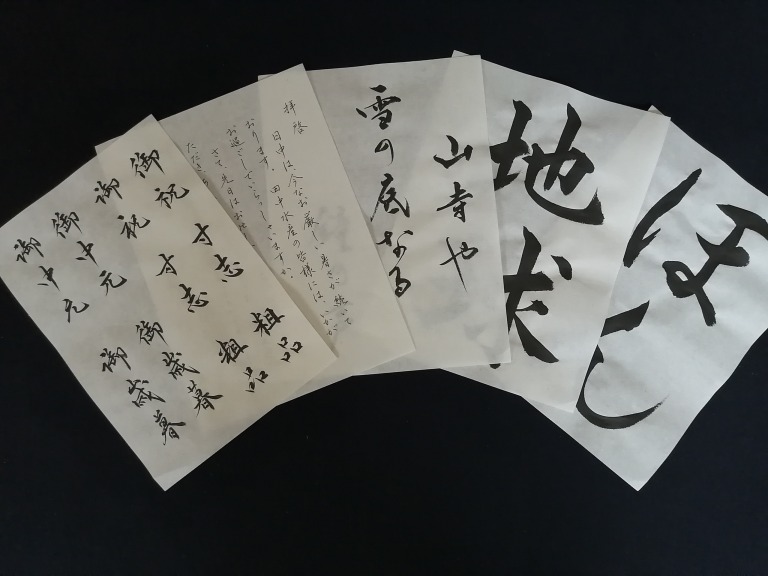 ほし
地
山寺や
雪の底なる
拝啓
日中は今なお厳しい暑さが続いて
おります。田中水産の皆様には、いかが
お過ごしでいらっしゃいますか。
さて先日はお
ただき
御祝 寸志 粗品
御祝 寸志 粗品
御中元 御歳暮
御中元 御歳暮